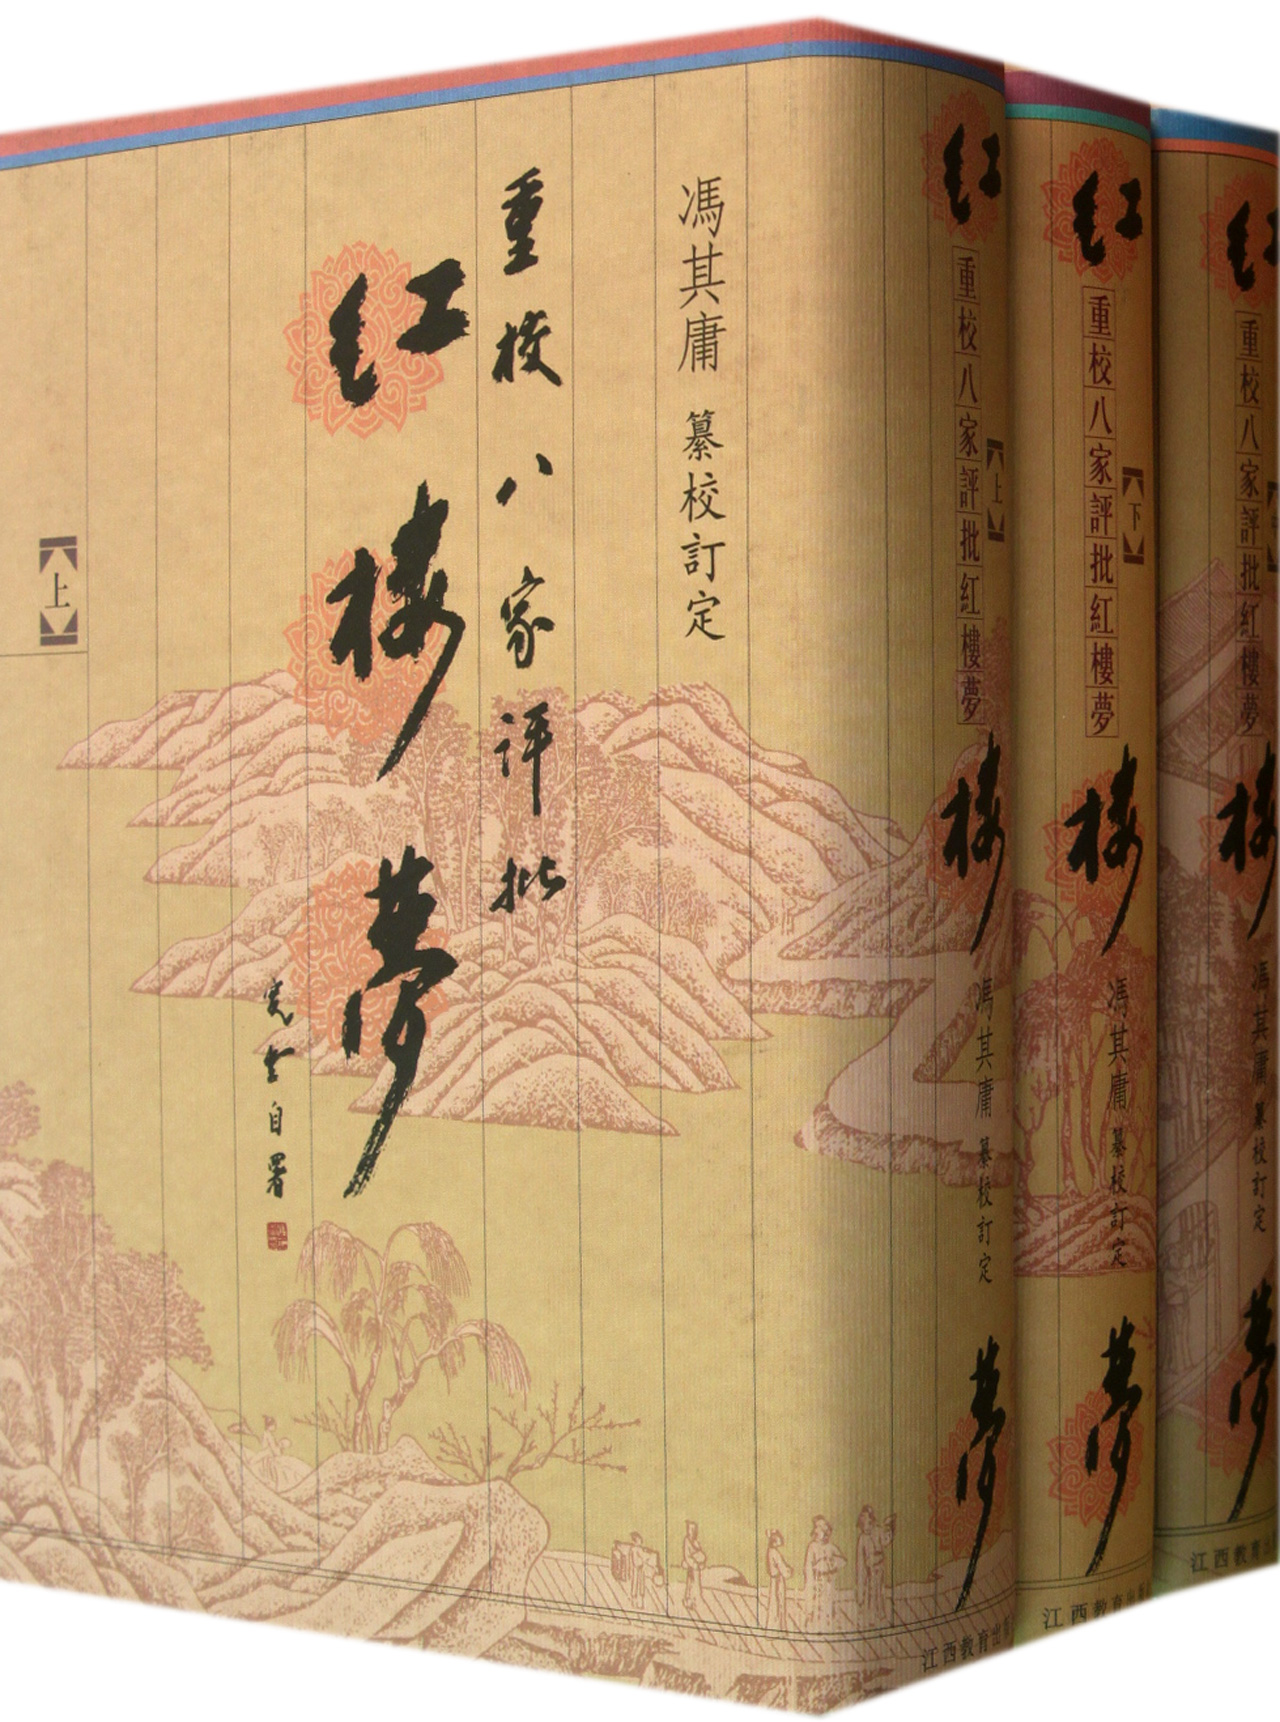 馮其庸 纂校訂定
重校八家评批
红楼梦
宽堂自署
【上】
红楼梦
重校八家評批紅樓夢
【上】
馮其庸 纂校訂定
江西教育出版
红楼梦
重校八家評批紅樓夢
【下】
馮其庸 纂校訂定
江西教育出版
红楼梦
重校八家評批紅樓夢
馮其庸 纂校訂定
江西教育